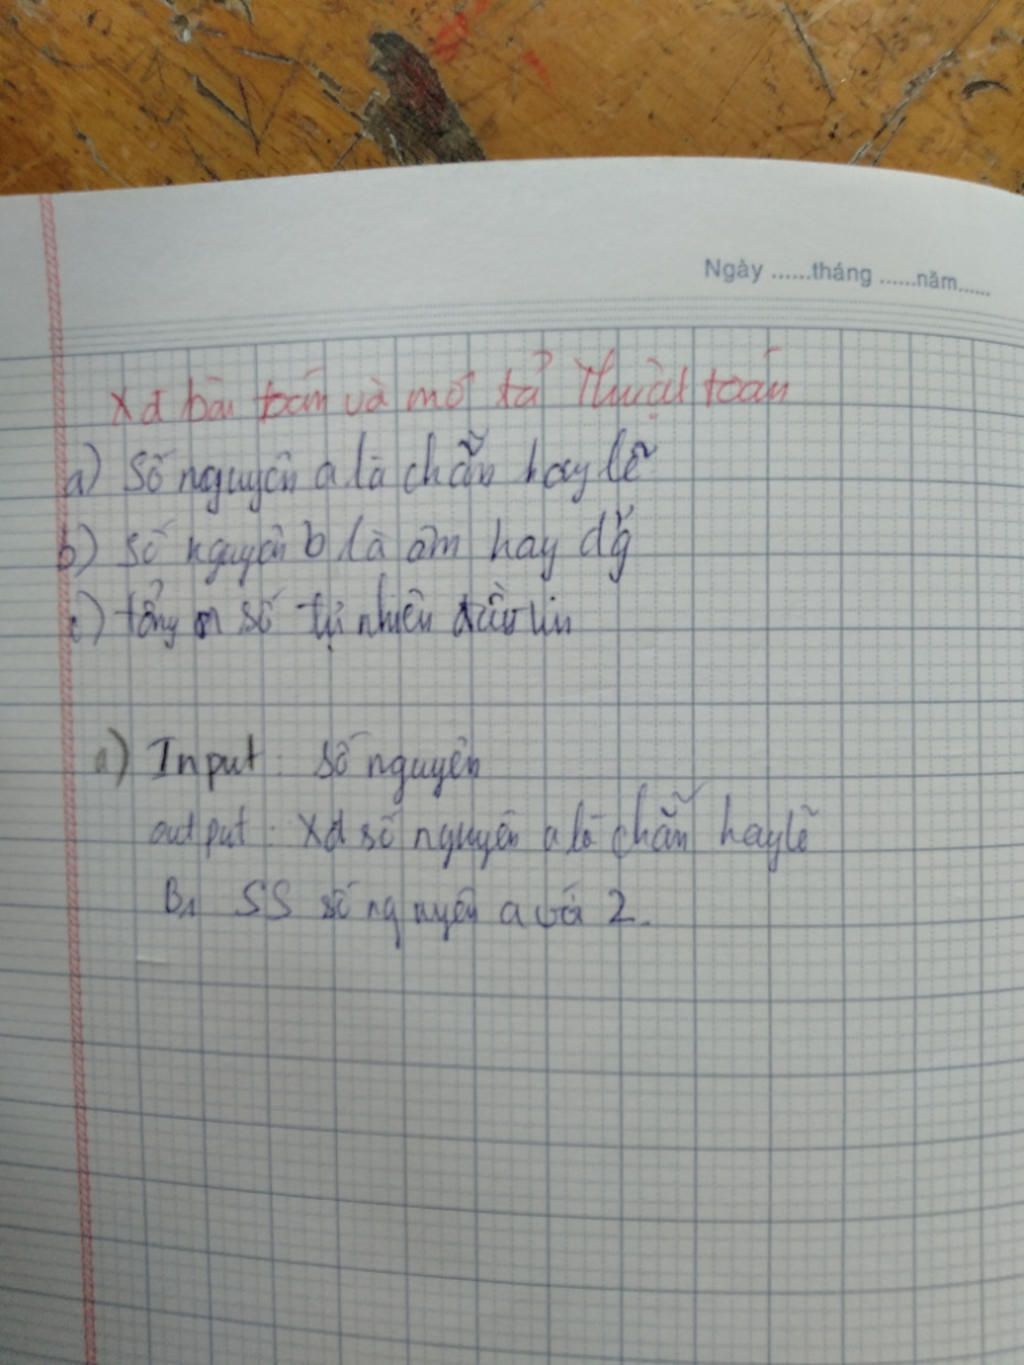 Ngày ......tháng ......năm......
Xđ bài toán và mô tả Thuật toán
a) Số nguyên a là chẵn hay lẽ
b) Số nguyên b là âm hay dg̛
c) tổng n số tự nhiên đầu
a) Input : số nguyên
output : Xđ số nguyên a là chẵn hay lẽ
B1 SS số nguyên a với 2.